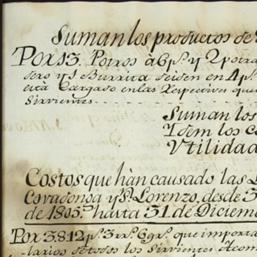 Suman los productos de
Por 13. Potros à 6 p.s y 2 potra
sero y 1 Burrita seiden en 4 p.s
está Cargado en las Respectivas que
Sirvientes
Suman los
Idem los c
Vtilidad
Costos que hàn causado las
Covadonga y S.n Lorenzo, desde
de 1805. hasta 31 de Diciem
Por 3812 p.s 3 rr.s 6 gr.s que importa
larios de todos los Sirvientes Acom